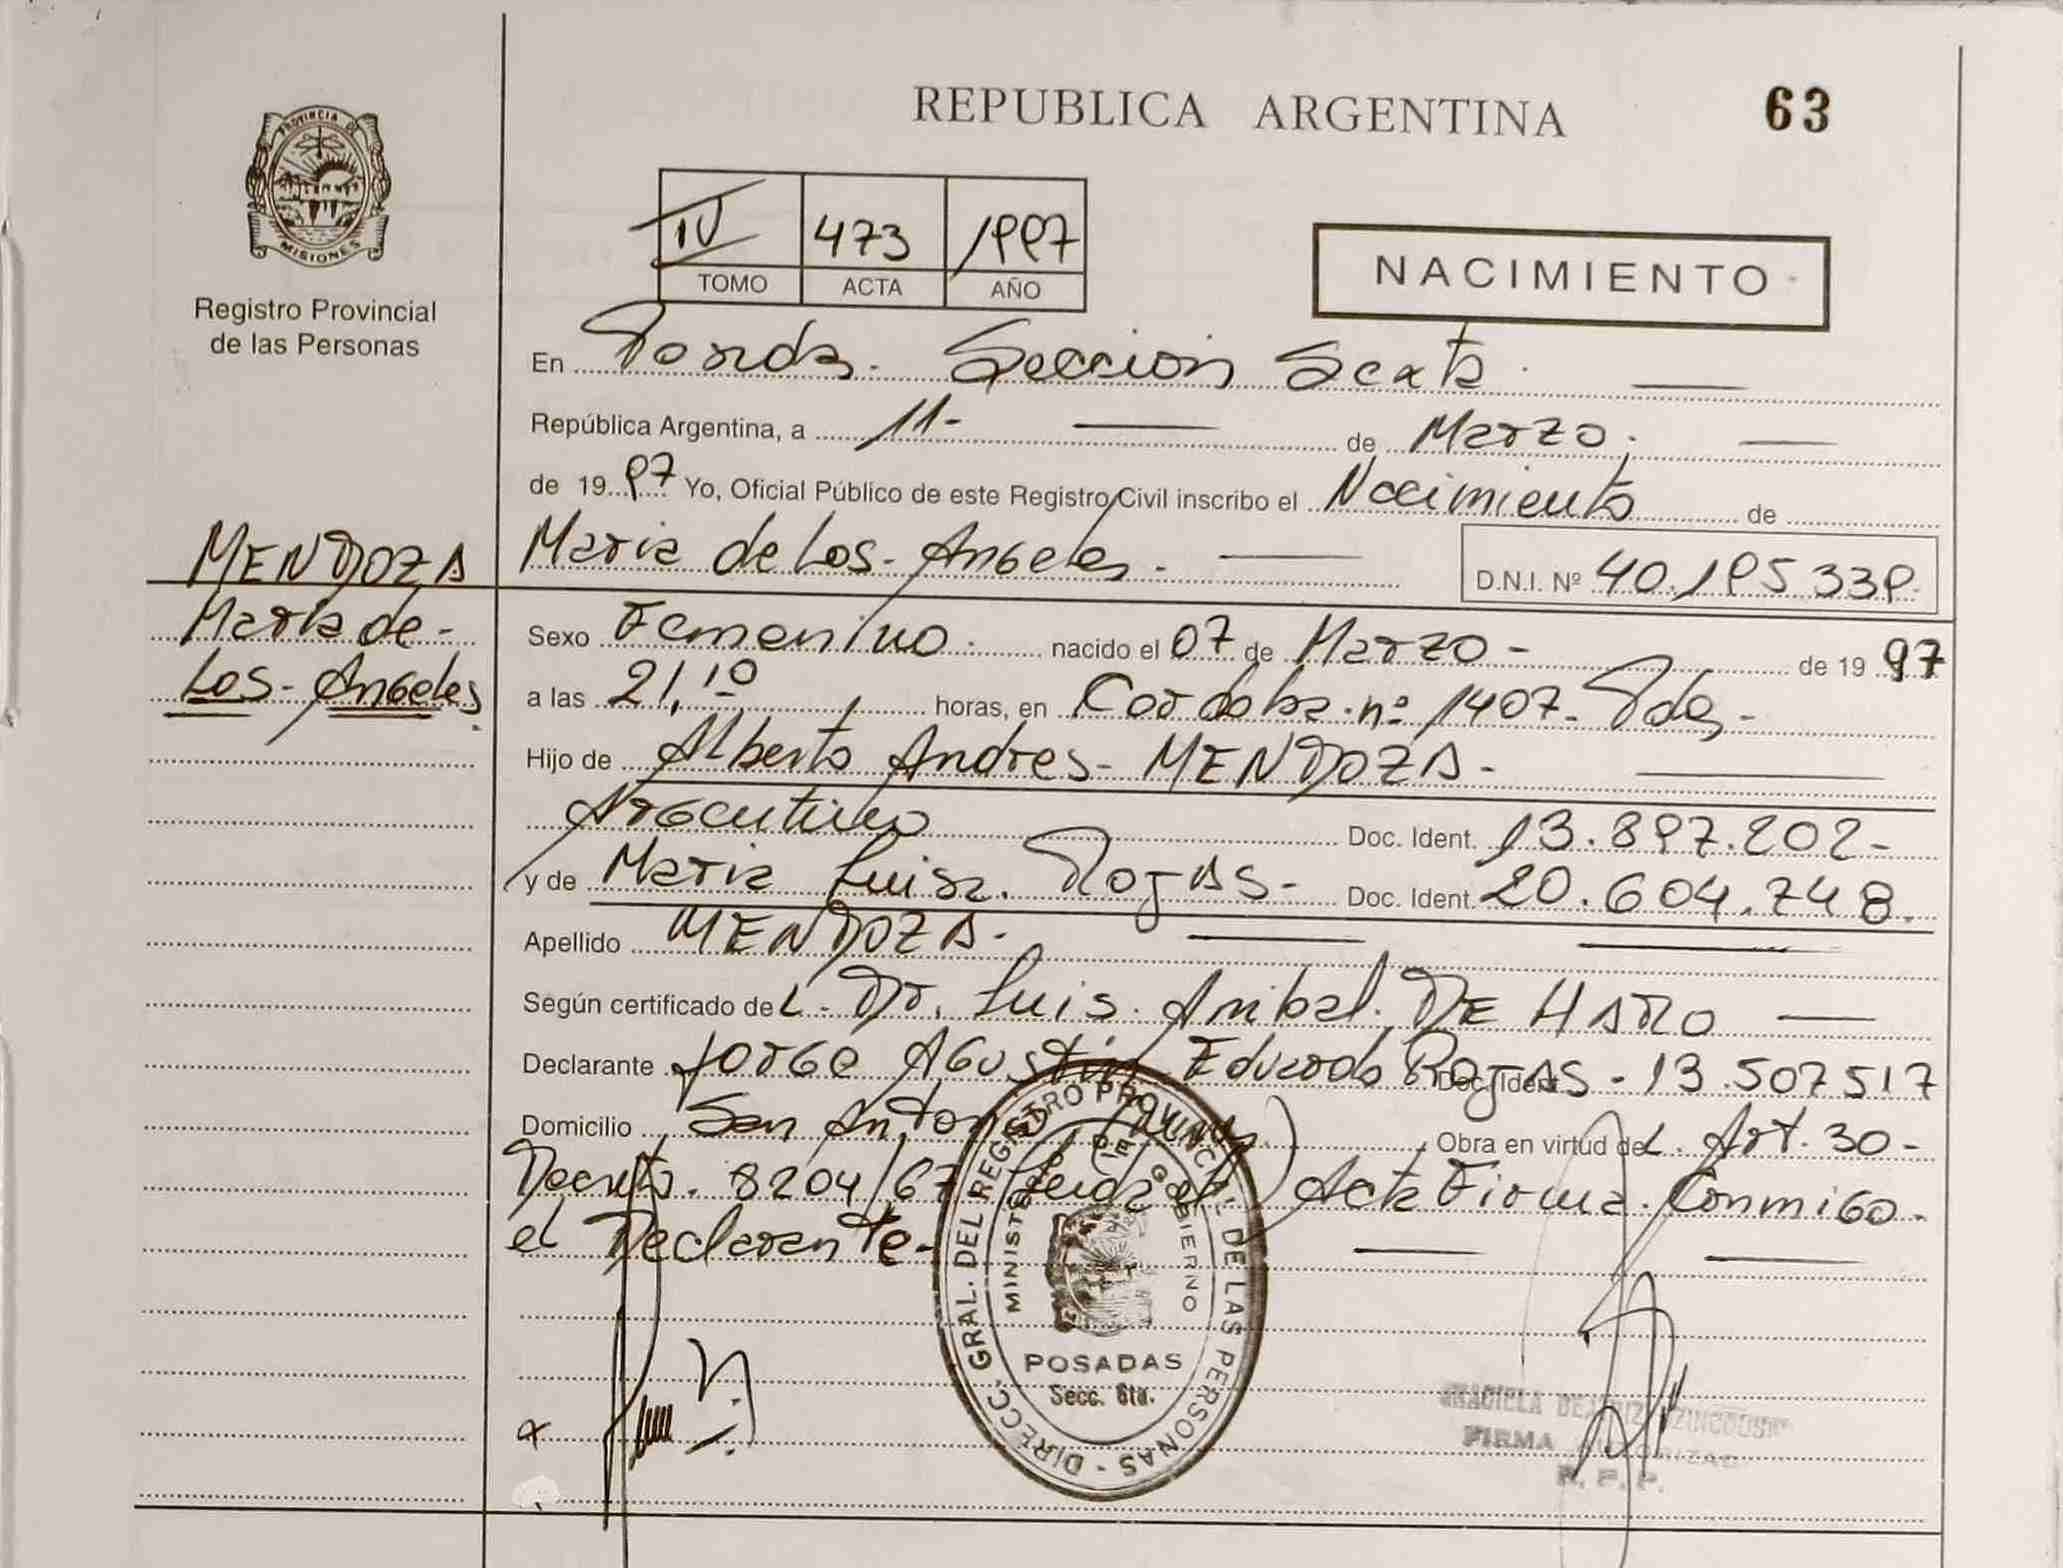 REPUBLICA ARGENTINA
63
PROVINCIA DE
MISIONES
Registro Provincial
de las Personas
IV 473 1997
TOMO ACTA AÑO
NACIMIENTO
En Posadas. Sección Sexta.
República Argentina, a 11- de Marzo.
de 1997 Yo, Oficial Público de este Registro Civil inscribo el Nacimiento de
MENDOZA
María de-
Los-Angeles
Maria de Los-Angeles.
D.N.I. Nº 40.195.339.
Sexo Femenino. nacido el 07 de Marzo- de 1997
a las 21,10 horas, en Cordoba.nº 1407- Pdas-
Hijo de Alberto Andres- MENDOZA-
Argentino Doc. Ident. 13.897.202-
y de Maria Luisa. ROJAS- Doc. Ident. 20.604.748.
Apellido MENDOZA-
Según certificado de L. Dr. Luis. Anibal. DE HARO
Declarante Jorge Agustín Eduardo ROJAS- Doc. Ident. 13.507517
Domicilio San Antonio Obra en virtud de L. Art. 30-
Decreto. 8204/67 Leida el Acta Firma. Conmigo-
el Declarante-
DIRECC. GRAL. DEL REGISTRO PROVINCIAL DE LAS PERSONAS -
MINISTERIO DE GOBIERNO
POSADAS
Secc. 6ta.
GRACIELA BEATRIZ
FIRMA AUTORIZADA
R. P. P.